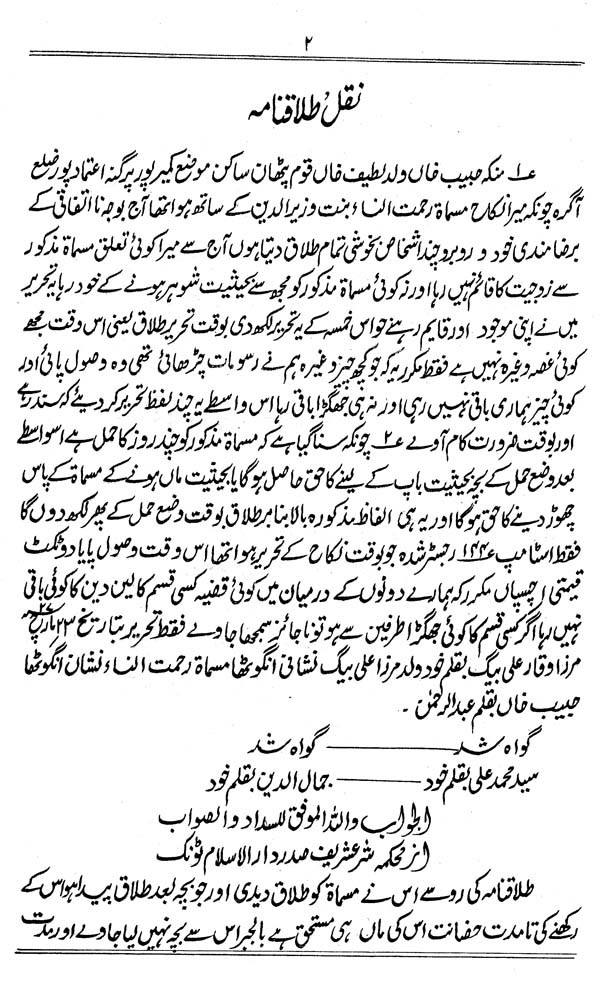 ۲
نقل طلاقنامہ
؏۱ منکہ حبیب خاں ولد لطیف خاں قوم پٹھان ساکن موضع کبیر پور پرگنہ اعتماد پور ضلع
آگرہ چونکہ میرا نکاح مسماۃ رحمت النساء بنت وزیر الدین کے ساتھ ہوا تھا آج بوجہ نا اتفاقی کے
برضا مندی خود و روبرو چند اشخاص بخوشی تمام طلاق دیتا ہوں آج سے میرا کوئی تعلق مسماۃ مذکور
سے زوجیت کا قائم نہیں رہا اور نہ کوئی مسماۃ مذکور کو مجھ سے بحیثیت شوہر ہونے کے خود رہا یہ تحریر
میں نے اپنی موجود اور قایم رہنے حواس خمسہ کے یہ تحریر لکھ دی بوقت تحریر طلاق یعنی اس وقت مجھے
کوئی غصہ وغیرہ نہیں ہے فقط مکرر یہ کہ جو کچھ چیز وغیرہ ہم نے رسومات چڑھائی تھی وہ وصول پائی اور
کوئی چیز ہماری باقی نہیں رہی اور نہ ہی جھگڑا باقی رہا اس واسطے یہ چند لفظ تحریر کر دیئے کہ سند رہے
اور بوقت ضرورت کام آوے ؏۲ چونکہ سنا گیا ہے کہ مسماۃ مذکور کو چند روز کا حمل ہے اسواسطے
بعد وضع حمل کے بچہ بحیثیت باپ کے لینے کا حق حاصل ہوگا یا بحیثیت ماں ہونے کے مسماۃ کے پاس
چھوڑ دینے کا حق ہوگا اور یہ ہی الفاظ مذکورہ بالا بنا بر طلاق بوقت وضع حمل کے پھر لکھ دوں گا
فقط اسٹامپ رجسٹر شدہ جو بوقت نکاح کے تحریر ہوا تھا اس وقت وصول پایا دو ٹکٹ
قیمتی چسپاں مکرر کہ ہمارے دونوں کے درمیان میں کوئی قضیہ کسی قسم کا لین دین کا کوئی باقی
نہیں رہا اگر کسی قسم کا کوئی جھگڑا طرفین سے ہو تو ناجائز سمجھا جاوے فقط تحریر بتاریخ ۲۳ مارچ
مرزا وقار علی بیگ بقلم خود ولد مرزا علی بیگ نشانی انگوٹھا مسماۃ رحمت النساء نشان انگوٹھا
حبیب خاں بقلم عبدالرحمٰن ۔
گواہ شد ــــــــ گواہ شد
سید محمد علی بقلم خود ــــــــ جمال الدین بقلم خود
الجواب واللہ الموفق للسداد والصواب
از محکمہ شرع شریف صدر دار الاسلام ٹونک
طلاقنامہ کی رو سے اس نے مسماۃ کو طلاق دیدی اور جو بچہ بعد طلاق پیدا ہو اس کے
رکھنے کی تا مدت حضانت اس کی ماں ہی مستحق ہے بالجبر اس سے بچہ نہیں لیا جاوے اور مدت